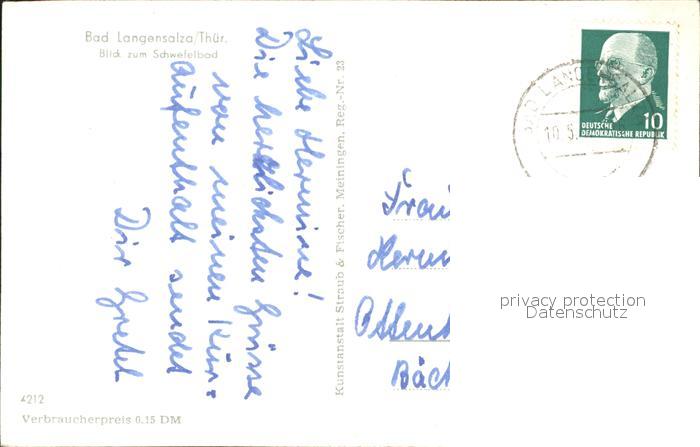 Bad Langensalza/Thür.
Blick zum Schwefelbad
Liebe Hermine!
Die herzlichsten Grüsse
von meinen Kur-
aufenthalt sendet
Dir Gretel
Kunstanstalt Straub & Fischer, Meiningen, Reg.-Nr. 23
10
DEUTSCHE
DEMOKRATISCHE REPUBLIK
BAD LANGENSALZA
10.5.
Frau
Herm
privacy protection
Datenschutz
4212
Verbraucherpreis 0,15 DM